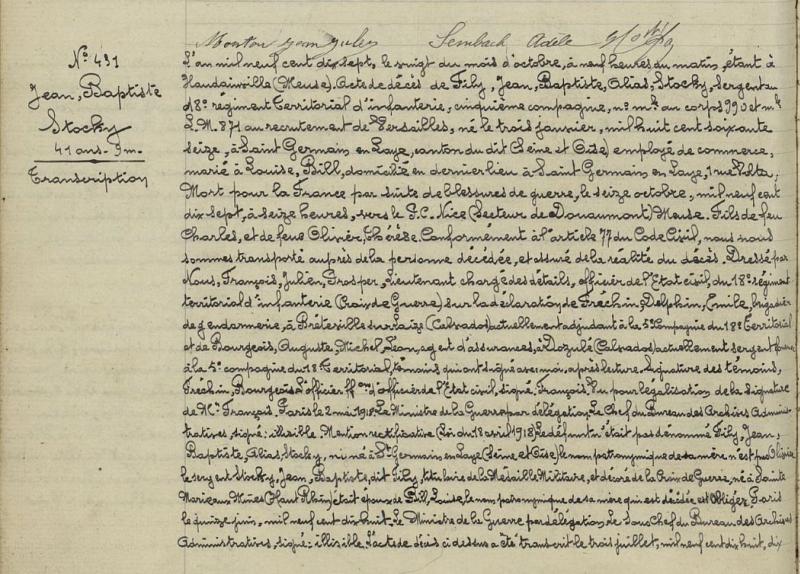 Nº 431
Jean, Baptiste
Stocky
41 ans - 9 m -
Transcription
Mouton Jean Jules Sembach Adèle
L'an mil neuf cent dix sept, le vingt du mois d'octobre, à neuf heures du matin, étant à
Haudainville (Meuse). Acte de décès de Fily, Jean, Baptiste, Alias, Stocky, sergent au
18e régiment Territorial d'infanterie, cinquième compagnie, no mle au corps 990 et mle
L.M. 871 au recrutement de Versailles, né le trois janvier, mil huit cent soixante
seize, à Saint Germain en Laye, canton du dit (Seine et Oise) employé de commerce,
marié à Louise, Bill, domicilié en dernier lieu à Saint Germain en Laye, 1 rue Volta.
Mort pour la France par suite de blessures de guerre, le seize octobre, mil neuf cent
dix sept, à seize heures, vers le G.C. Nice (Secteur de Douaumont) Meuse. Fils de feu
Charles, et de feue Olivier, Thérèse. Conformément à l'article 77 du Code Civil, nous nous
sommes transporté auprès de la personne décédée, et assuré de la réalité du décès. Dressé par
Nous, François, Julien, Prosper, lieutenant chargé des détails, officier de l'Etat civil, du 18e régiment
territorial d'infanterie (Croix de Guerre) sur la déclaration, de Fréchin, Delphin, Emile, brigadier
de gendarmerie, à Bretteville sur Laize (Calvados) actuellement adjudant à la 5e Compagnie du 18e Territorial
et de Bourgeois, Auguste, Michel, Jean, agent d'assurances, à Dozulé (Calvados) actuellement sergent
à la 5e compagnie du 18e Territorial, témoins qui ont signé avec moi, après lecture. Signature des témoins,
Fréchin, Bourgeois. L'officier ff ons d'officier de l'Etat civil, signé, François. Vu pour légalisation de la signature
de Mr François, Paris le 2 mai 1918. Le Ministre de la Guerre par délégation. Le Chef du Bureau des Archives Adminis-
tratives, signé: illisible. Mention rectificative (Loi du 18 avril 1918). Le défunt n'était pas dénommé Fily, Jean,
Baptiste, Alias, Stocky, ni né à St Germain, en Laye (Seine et Oise) le nom patronymique de sa mère n'est pas Olivier
le sergent Stocky, Jean, Baptiste, dit Fily, titulaire de la Médaille Militaire, et décoré de la Croix de Guerre, né à Sainte
Marie aux Mines (Haut Rhin) était époux de Bill, Louise, le nom patronymique de sa mère qui est décédée est Obliger, Paris
le quinze juin, mil neuf cent dix huit. Le Ministre de la Guerre par délégation. Le Sous Chef du Bureau des Archives
Administratives, signé: illisible. L'acte de décès ci dessus a été transcrit le trois juillet, mil neuf cent dix huit, dix